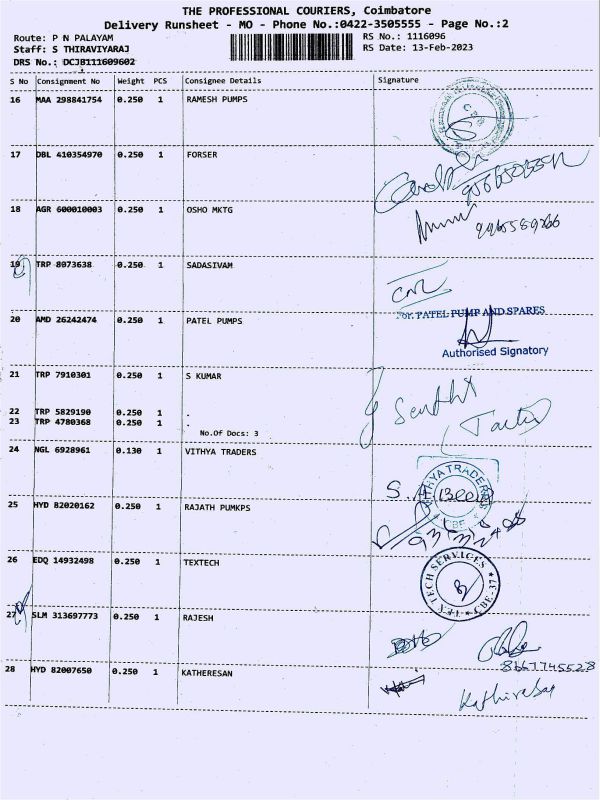 THE PROFESSIONAL COURIERS, Coimbatore
Delivery Runsheet - MO - Phone No.:0422-3505555 - Page No.:2
Route: P N PALAYAM RS No.: 1116096
Staff: S THIRAVIYARAJ RS Date: 13-Feb-2023
DRS No.: DCJB111609602
S No Consignment No Weight PCS Consignee Details Signature
16 MAA 298841754 0.250 1 RAMESH PUMPS
17 DBL 410354970 0.250 1 FORSER
18 AGR 600010003 0.250 1 OSHO MKTG
19 TRP 8073638 0.250 1 SADASIVAM
For. PATEL PUMP AND SPARES
20 AMD 26242474 0.250 1 PATEL PUMPS
Authorised Signatory
21 TRP 7910301 0.250 1 S KUMAR
22 TRP 5829190 0.250 1 .
23 TRP 4780368 0.250 1 .
No.Of Docs: 3
24 NGL 6928961 0.130 1 VITHYA TRADERS
VITHYA TRADERS
CBE
25 HYD 82020162 0.250 1 RAJATH PUMKPS
26 EDQ 14932498 0.250 1 TEXTECH
TEX TECH SERVICES CBE-37
27 SLM 313697773 0.250 1 RAJESH
8667745528
28 HYD 82007650 0.250 1 KATHERESAN
Kathiresan